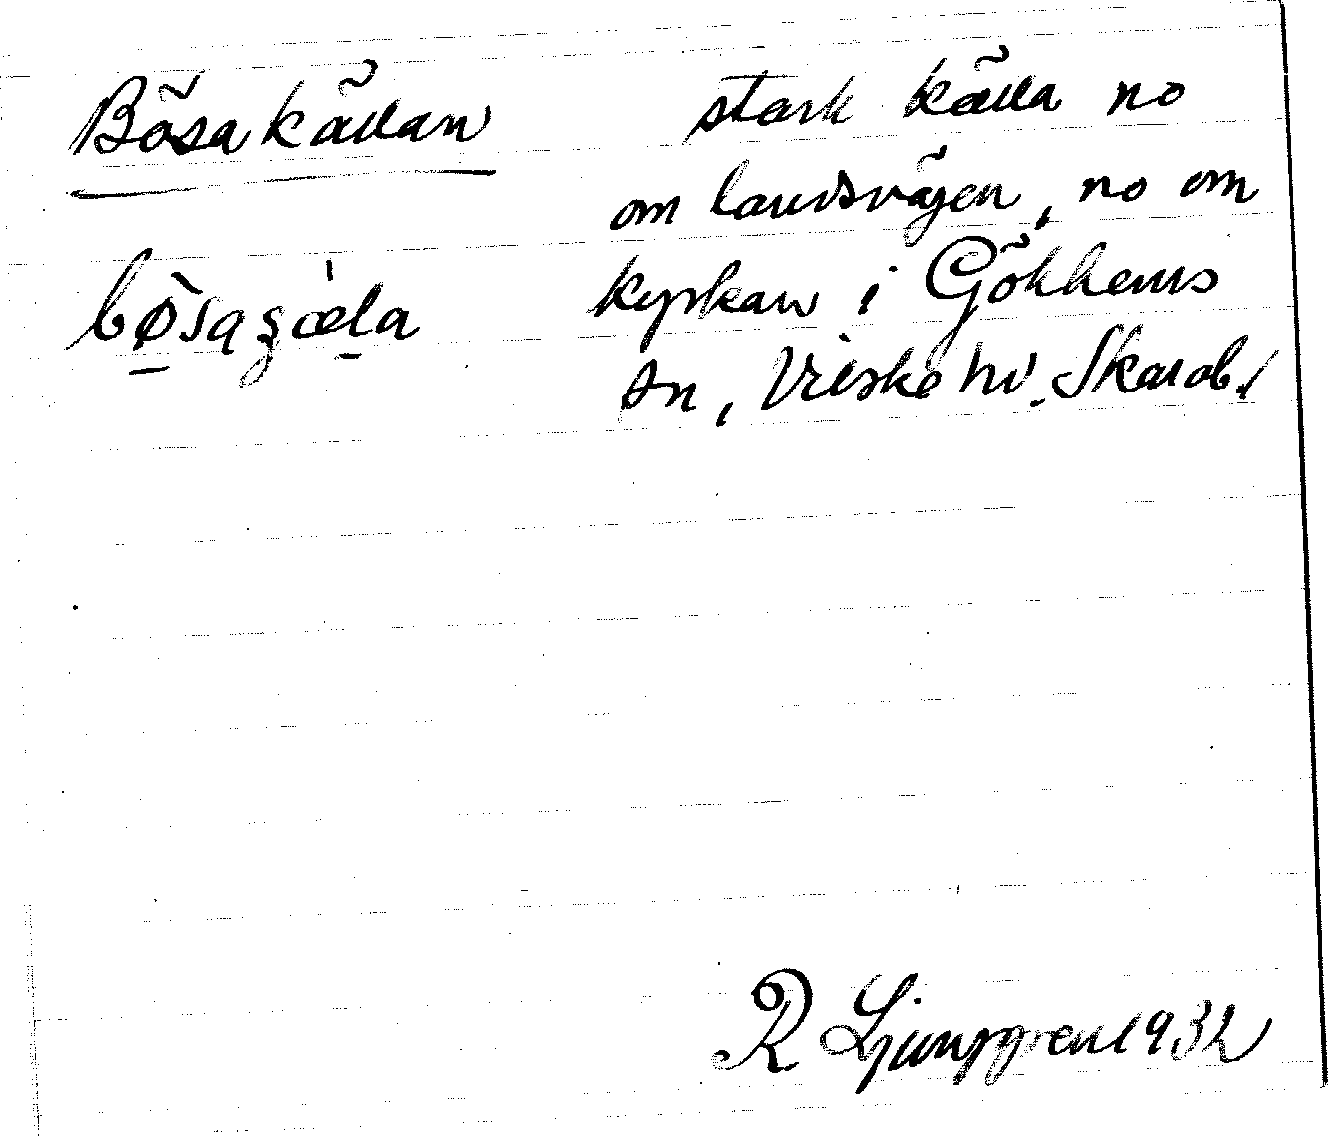 Bösakällan
bøsaɟæla
stark källa no
om landsvägen, no om
kyrkan i Gökhems
sn, Vilske hd. Skarab.
R Ljunggren 1932